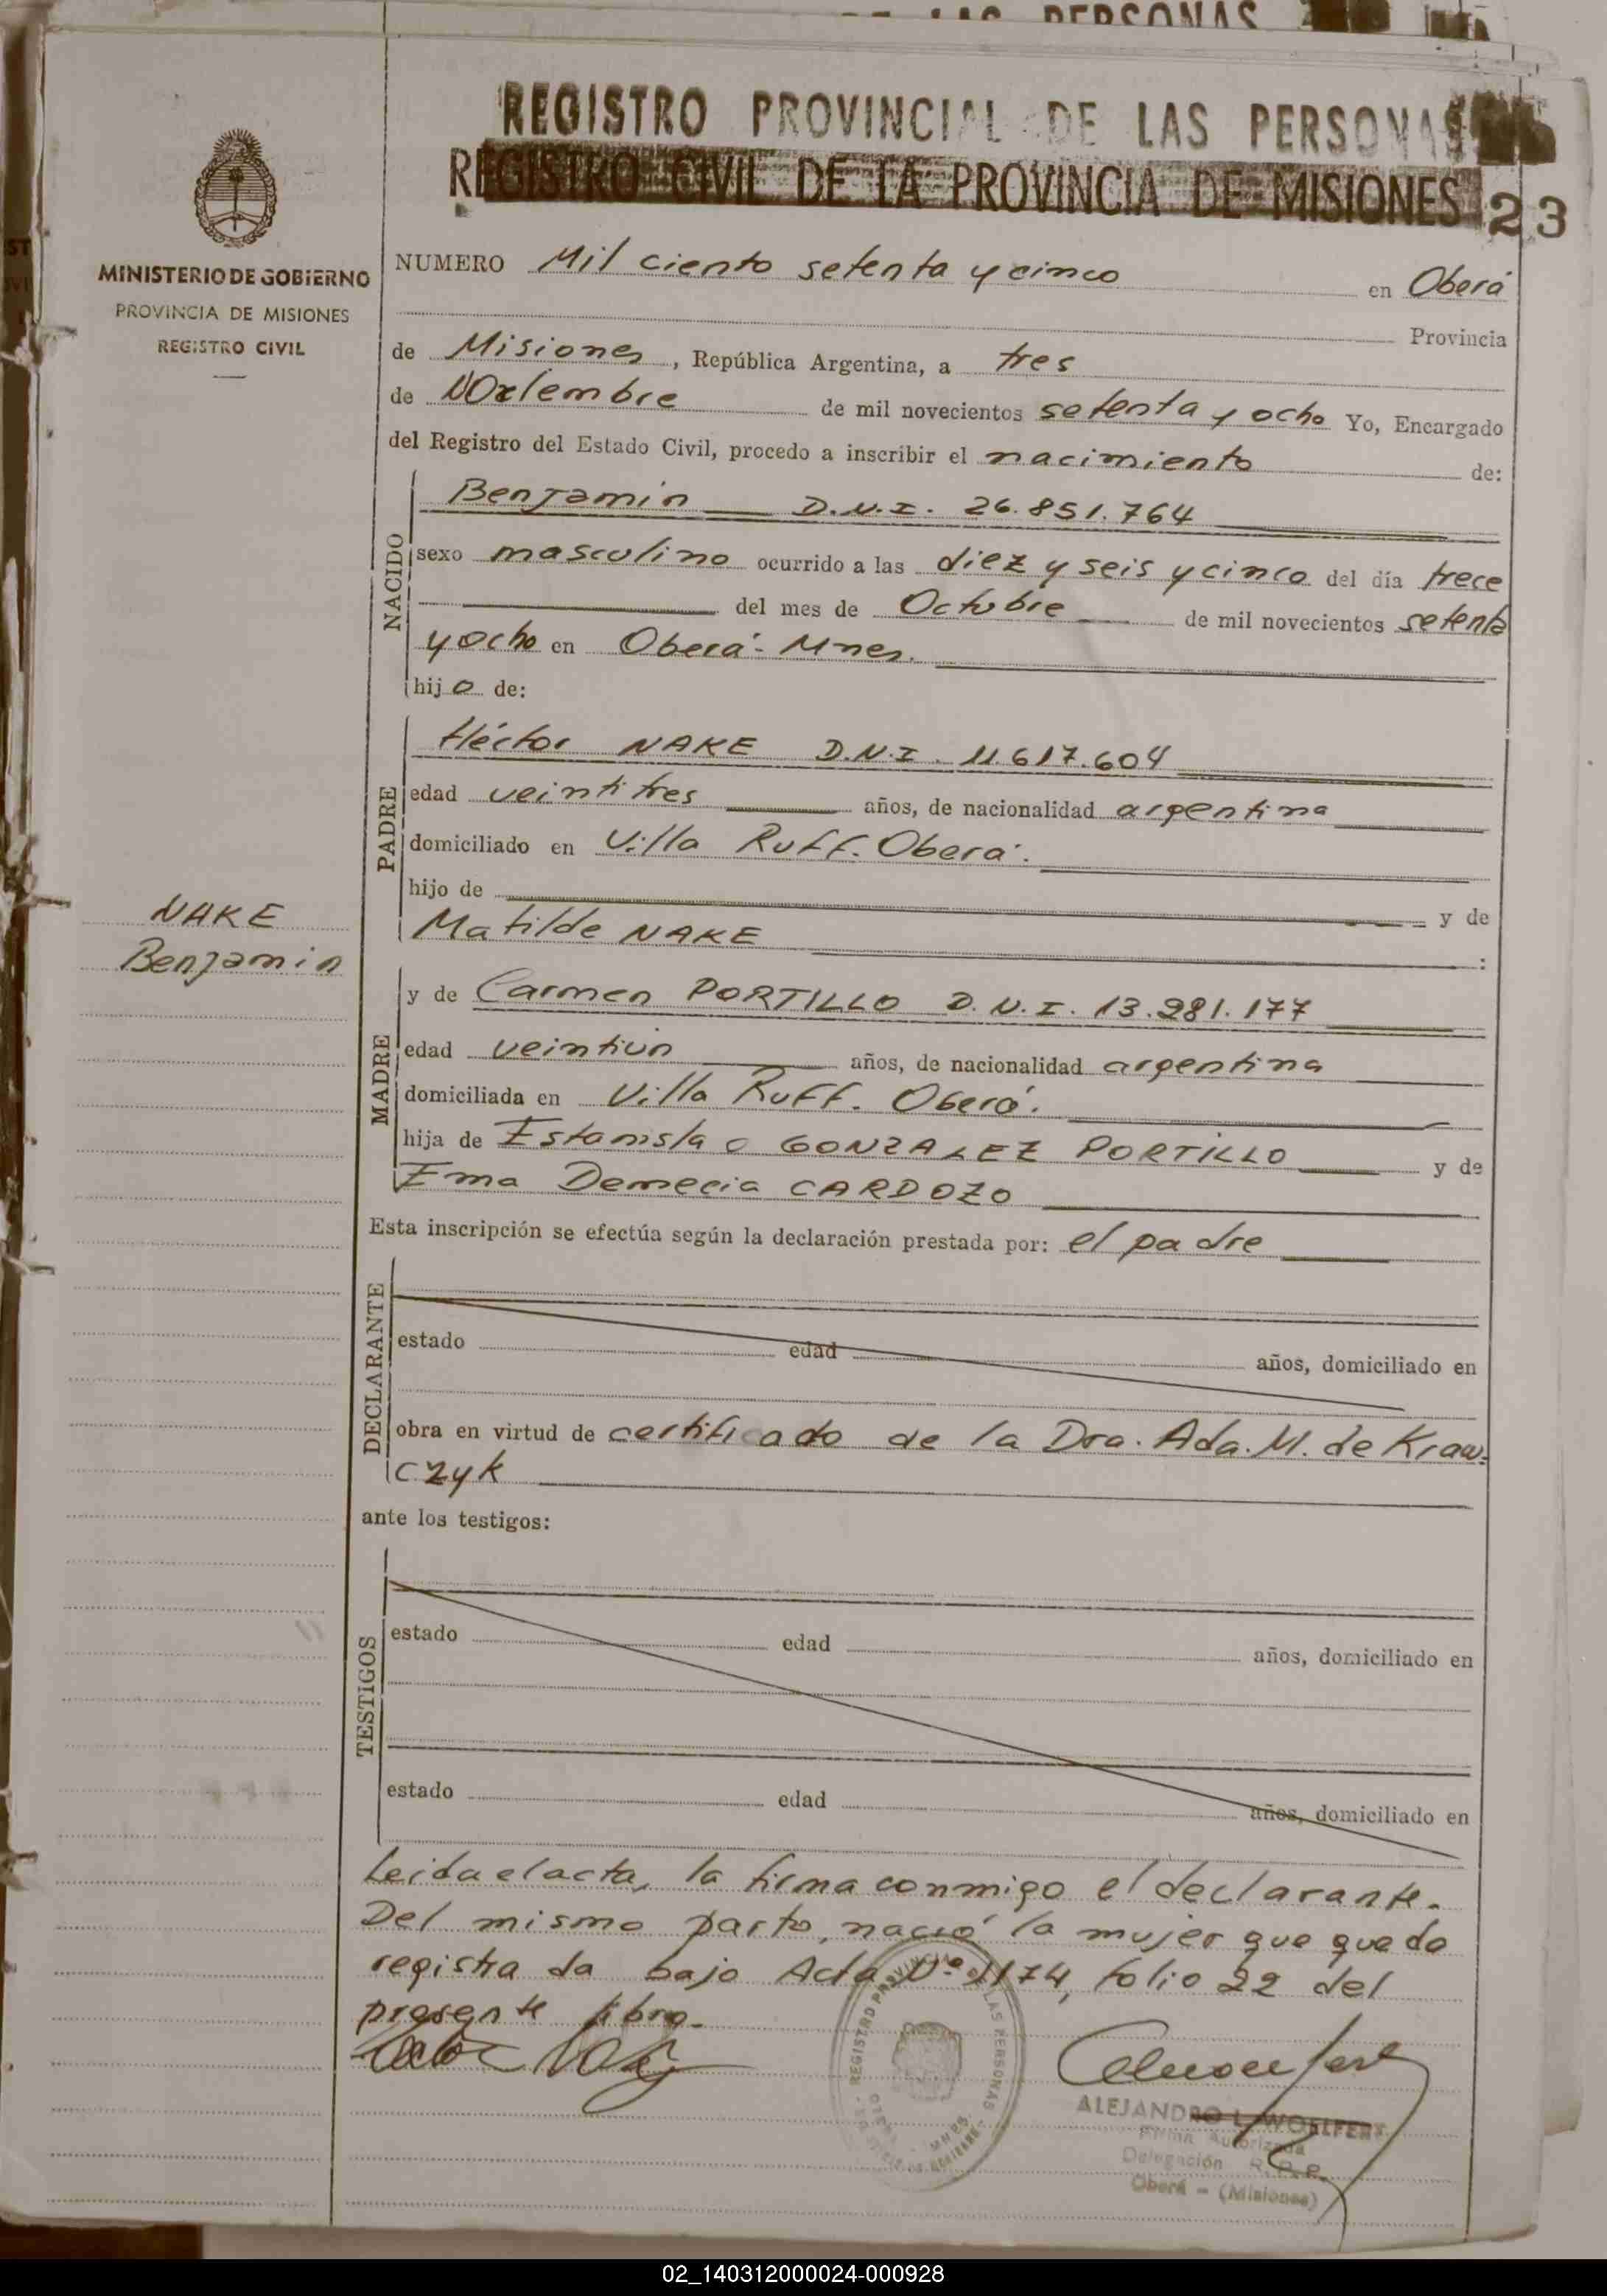 DE LAS PERSONAS
REGISTRO PROVINCIAL DE LAS PERSONAS
REGISTRO CIVIL DE LA PROVINCIA DE MISIONES 23
MINISTERIO DE GOBIERNO
PROVINCIA DE MISIONES
REGISTRO CIVIL
NUMERO Mil ciento setenta y cinco en Oberá
Provincia
de Misiones, República Argentina, a tres
de Noviembre de mil novecientos setenta y ocho Yo, Encargado
del Registro del Estado Civil, procedo a inscribir el nacimiento de:
NACIDO
Benjamín D.N.I. 26.851.764
sexo masculino ocurrido a las diez y seis y cinco del día trece
del mes de Octubre de mil novecientos setenta
y ocho en Oberá - Mnes.
hijo de:
PADRE
Héctor NAKE D.N.I. 11.617.604
edad veintitres años, de nacionalidad argentina
domiciliado en Villa Ruff. Oberá.
hijo de y de
Matilde NAKE :
NAKE
Benjamin
MADRE
y de Carmen PORTILLO D.N.I. 13.281.177
edad veintiún años, de nacionalidad argentina
domiciliada en Villa Ruff. Oberá.
hija de Estanislao GONZALEZ PORTILLO y de
Ema Demecia CARDOZO
Esta inscripción se efectúa según la declaración prestada por: el padre
DECLARANTE
estado edad años, domiciliado en
obra en virtud de certificado de la Dra. Ada. M. de Kraw-
czyk
ante los testigos:
TESTIGOS
estado edad años, domiciliado en
estado edad años, domiciliado en
Leida el acta, la firma conmigo el declarante.
Del mismo parto, nació la mujer que queda
registrada bajo Acta Nº 1174, folio 22 del
presente libro.
REGISTRO PROVINCIAL DE LAS PERSONAS
ALEJANDRO L. WOELFERT
Firma Autorizada
Delegación R.P.P.
Oberá - (Misiones)
02_140312000024-000928